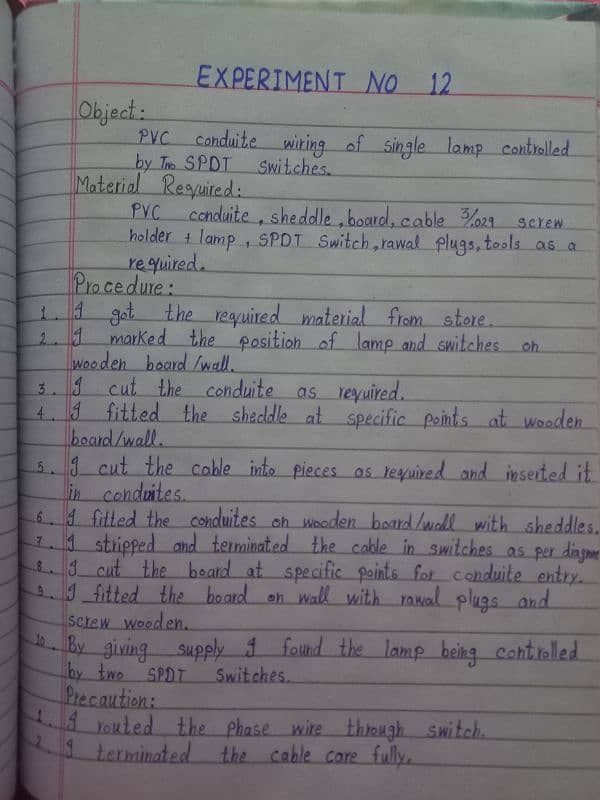 EXPERIMENT NO 12
Object:
PVC conduite wiring of single lamp controlled
by Two SPDT Switches.
Material Required:
PVC conduite, sheddle, board, cable 3/.029 screw
holder + lamp, SPDT Switch, rawal plugs, tools as a
required.
Procedure:
1. I got the required material from store.
2. I marked the position of lamp and switches on
wooden board/wall.
3. I cut the conduite as required.
4. I fitted the sheddle at specific points at wooden
board/wall.
5. I cut the cable into pieces as required and inserted it
in conduites.
6. I fitted the conduites on wooden board/wall with sheddles.
7. I stripped and terminated the cable in switches as per
8. I cut the board at specific points for conduite entry.
9. I fitted the board on wall with rawal plugs and
screw wooden.
10. By giving supply I found the lamp being controlled
by two SPDT Switches.
Precaution:
1. I routed the phase wire through switch.
2. I terminated the cable care fully.